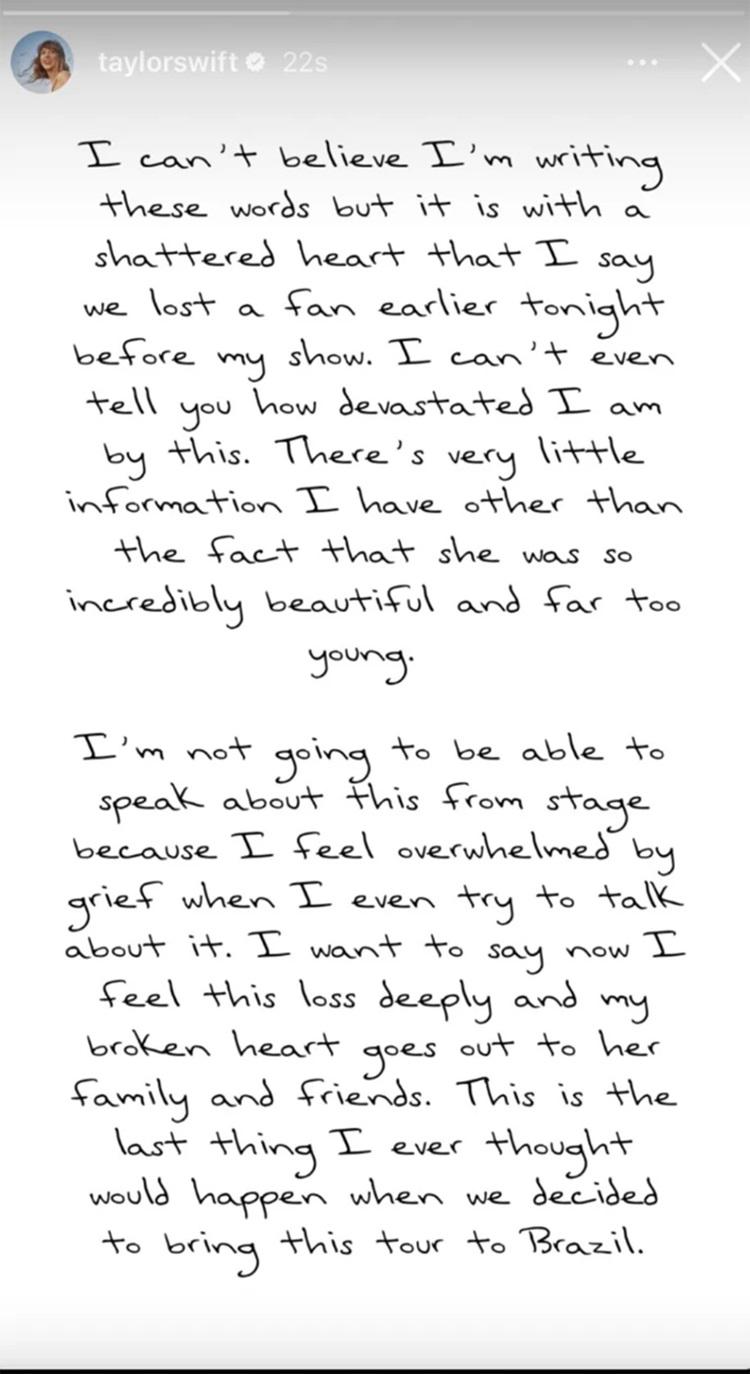 taylorswift 22s
I can't believe I'm writing
these words but it is with a
shattered heart that I say
we lost a fan earlier tonight
before my show. I can't even
tell you how devastated I am
by this. There's very little
information I have other than
the fact that she was so
incredibly beautiful and far too
young.
I'm not going to be able to
speak about this from stage
because I feel overwhelmed by
grief when I even try to talk
about it. I want to say now I
feel this loss deeply and my
broken heart goes out to her
family and friends. This is the
last thing I ever thought
would happen when we decided
to bring this tour to Brazil.